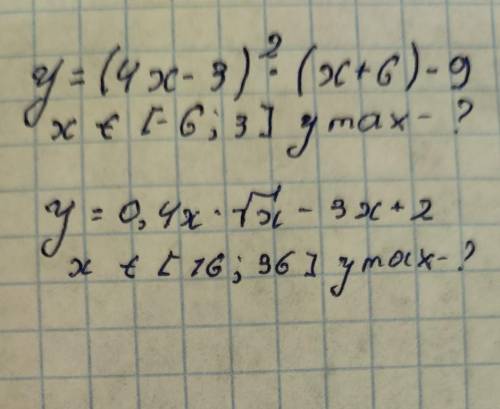 y = (4x - 3)² · (x + 6) - 9
x ∈ [-6; 3] y max - ?
y = 0,4x · √x - 3x + 2
x ∈ [16; 36] y max - ?